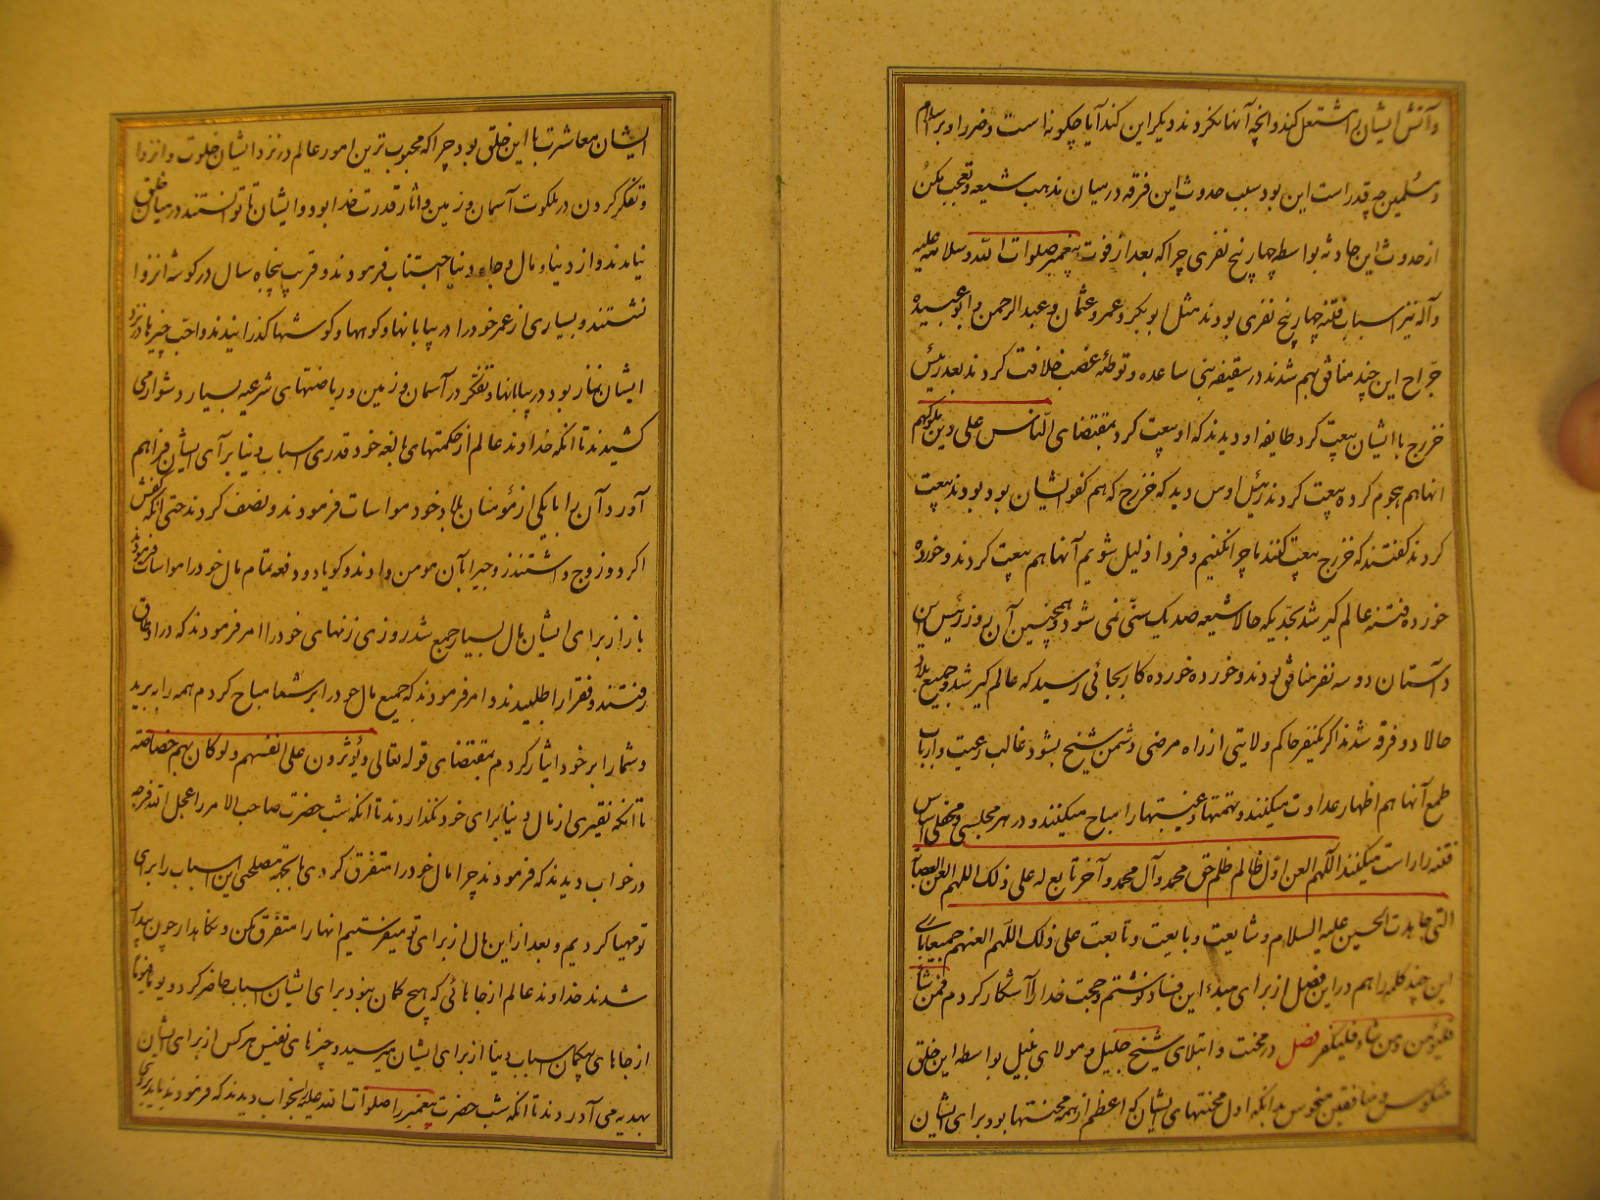 وآتش ایشان را مشتعل کند وانچه آنها نکردند دیگر این کند آیا چگونه است وضرر او بر اسلام
ومسلمین چه قدر است این بود سبب حدوث این فرقه در میان مذهب شیعه وتعجب مکن
از حدوث این حادثه بواسطه چهار پنج نفری چرا که بعد از فوت پیغمبر صلوات الله وسلامه علیه
وآله نیز اسباب فتنه چهار پنج نفری بودند مثل ابوبکر وعمر وعثمان وعبدالرحمن وابوعبیده
جراح این چند منافق بهم شدند در سقیفه بنی ساعده وتوطئه غصب خلافت کردند بعد رئیس
خزرج با ایشان بیعت کرد طایفه او دیدند که او بیعت کرد بمقتضای الناس علی دین ملوکهم
انها هم هجوم کرده بیعت کردند رئیس اوس دید که خزرج که هم کفو ایشان بود بودند بیعت
کردند گفتند که خزرج بیعت کنند ما چرا نکنیم وفردا ذلیل شویم آنها هم بیعت کردند وخورده
خورده فتنه عالم گیر شد بحدیکه حالا شیعه صد یک سنی نمی شود همچنین آن روز رئیس این
داستان دو سه نفر منافق بودند وخورده خورده کار بجائی رسید که عالم گیر شد وجمیع بلاد
حالا دو فرقه شدند اگر یکنفر حاکم ولایتی از راه مرضی دشمن شیخ بشود غالب رعیت وارباب
طمع آنها هم اظهار عداوت میکنند وتهمتها وغیبتها را مباح میکنند و در هر مجلسی ومحفلی اساس
فتنه را راست میکنند اللهم العن اول ظالم ظلم حق محمد وآل محمد وآخر تابع له علی ذلک اللهم العن العصابة
التی جاهدت الحسین علیه السلام وشایعت وبایعت وتابعت علی ذلک اللهم العنهم جمیعا باری
این چند کلمه را هم در این فصل از برای مبدء این فساد نوشتم وحجت خدا را آشکار کردم فمن شاء
فلیؤمن ومن شاء فلیکفر فصل در محنت وابتلای شیخ جلیل ومولای نبیل بواسطه این خلق
منکوس ومنافقین منحوس بدانکه اول محنتهای ایشان که اعظم از همه محنتها بود برای ایشان
ایشان معاشرت با این خلق بود چرا که محبوب ترین امور عالم در نزد ایشان خلوت وانزوا
وتفکر کردن در ملکوت آسمان وزمین وآثار قدرت خدا بود وایشان تا توانستند در میان خلق
نیامدند واز دنیا ومال وجاه دنیا اجتناب فرمودند وقریب پنجاه سال در گوشه انزوا
نشستند وبسیاری از عمر خود را در بیابانها وکوهها وگوشها گذرانیدند واحب چیزها در نزد
ایشان نماز بود در بیابانها وتفکر در آسمان وزمین وریاضتهای شرعیه بسیار دشوار می
کشیدند تا انکه خداوند عالم از حکمتهای بالغه خود قدری اسباب دنیا برای ایشان فراهم
آورد آن را با یکی از مؤمنان بلاد خود مواسات فرمودند ونصف کردند حتی انکه کفش
اگر دو زوج داشتند زوجیرا بآن مومن دادند وگویا دو دفعه تمام مال خود را مواسات فرمودند
باز از برای ایشان مال بسیار جمیع شد روزی زنهای خود را امر فرمودند که در اوطاق
رفتند وفقرا را طلبیدند وامر فرمودند که جمیع مال خود را بر شما مباح کردم همه را به برید
وشما را بر خود ایثار کردم بمقتضای قوله تعالی ویؤثرون علی انفسهم ولو کان بهم خصاصة
تا انکه نقیری از مال دنیا برای خود نگذاردند تا انکه شب حضرت صاحب الامر را عجل الله فرجه
در خواب دیدند که فرمودند چرا مال خود را متفرق کردی ما بجهة مصلحتی این اسباب را برای
تو مهیا کردیم وبعد از این مال از برای تو میفرستیم انها را متفرق مکن ونگاهدار چون بیدار
شدند خداوند عالم از جاهائی که هیچ گمان نبود برای ایشان اسباب حاضر کرد ویوما فیوما
از جاهای بیگمان اسباب دنیا از برای ایشان میرسید وچیزهای نفیس هر کس از برای ایشان
بهدیه می آوردند تا انکه شب حضرت پیغمبر را صلوات الله علیه بخواب دیدند که فرمودند باید بروی